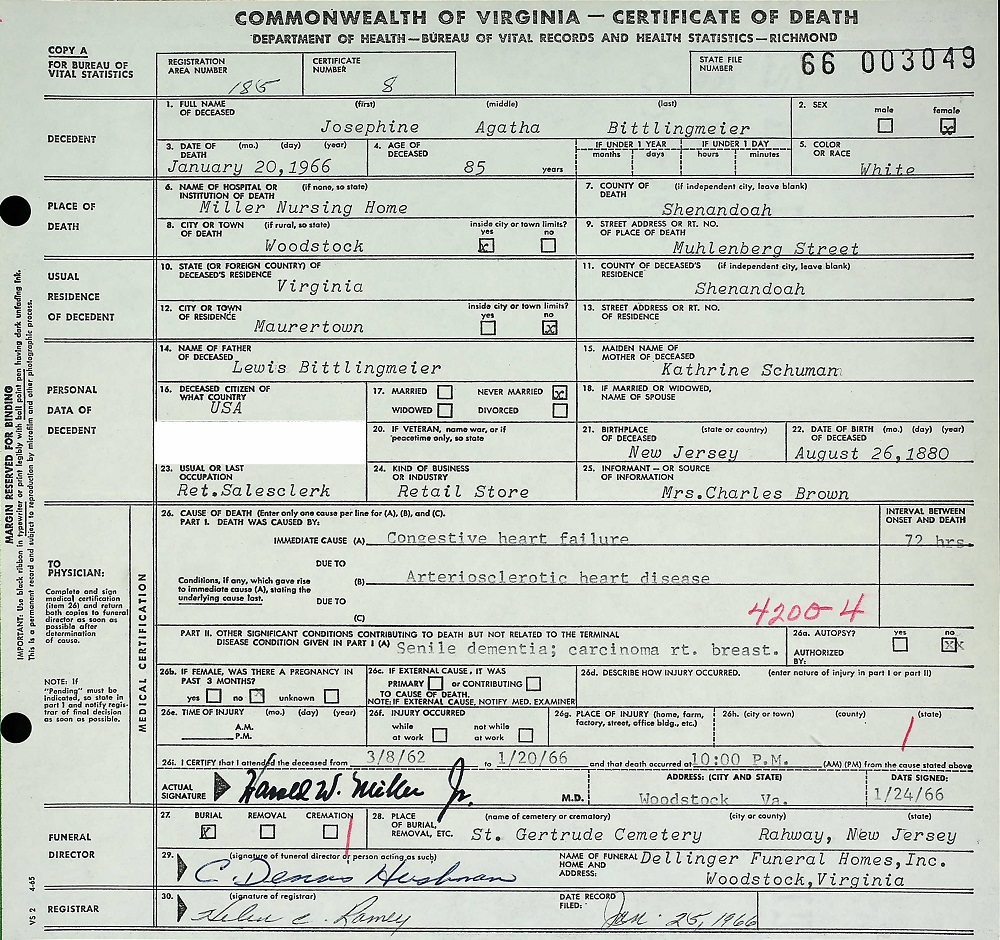 COMMONWEALTH OF VIRGINIA — CERTIFICATE OF DEATH
DEPARTMENT OF HEALTH—BUREAU OF VITAL RECORDS AND HEALTH STATISTICS—RICHMOND
COPY A
FOR BUREAU OF
VITAL STATISTICS
REGISTRATION
AREA NUMBER 185
CERTIFICATE
NUMBER 8
STATE FILE
NUMBER 66 003049
DECEDENT
1. FULL NAME OF DECEASED (first) (middle) (last)
Josephine Agatha Bittlingmeier
2. SEX male female x
3. DATE OF DEATH (mo.) (day) (year)
January 20,1966
4. AGE OF DECEASED
85 years
IF UNDER 1 YEAR IF UNDER 1 DAY
months days hours minutes
5. COLOR OR RACE
White
PLACE OF
DEATH
6. NAME OF HOSPITAL OR INSTITUTION OF DEATH (if none, so state)
Miller Nursing Home
7. COUNTY OF DEATH (if independent city, leave blank)
Shenandoah
8. CITY OR TOWN OF DEATH (if rural, so state) inside city or town limits? yes x no
Woodstock
9. STREET ADDRESS OR RT. NO. OF PLACE OF DEATH
Muhlenberg Street
USUAL
RESIDENCE
OF DECEDENT
10. STATE (OR FOREIGN COUNTRY) OF DECEASED'S RESIDENCE
Virginia
11. COUNTY OF DECEASED'S RESIDENCE (if independent city, leave blank)
Shenandoah
12. CITY OR TOWN OF RESIDENCE inside city or town limits? yes no x
Maurertown
13. STREET ADDRESS OR RT. NO. OF RESIDENCE
PERSONAL
DATA OF
DECEDENT
14. NAME OF FATHER OF DECEASED
Lewis Bittlingmeier
15. MAIDEN NAME OF MOTHER OF DECEASED
Kathrine Schuman
16. DECEASED CITIZEN OF WHAT COUNTRY
USA
17. MARRIED NEVER MARRIED x
WIDOWED DIVORCED
18. IF MARRIED OR WIDOWED, NAME OF SPOUSE
20. IF VETERAN, name war, or if peacetime only, so state
21. BIRTHPLACE OF DECEASED (state or country)
New Jersey
22. DATE OF BIRTH OF DECEASED (mo.) (day) (year)
August 26,1880
23. USUAL OR LAST OCCUPATION
Ret.Salesclerk
24. KIND OF BUSINESS OR INDUSTRY
Retail Store
25. INFORMANT — OR SOURCE OF INFORMATION
Mrs.Charles Brown
MARGIN RESERVED FOR BINDING
IMPORTANT: Use black ribbon in typewriter or print legibly with ball point pen having dark unfading ink.
This is a permanent record and subject to reproduction by microfilm and other photographic process.
TO
PHYSICIAN:
Complete and sign
medical certification
(item 26) and return
both copies to funeral
director as soon as
possible after
determination
of cause.
NOTE: If
"Pending" must be
indicated, so state in
part 1 and notify regis-
trar of final decision
as soon as possible.
MEDICAL CERTIFICATION
26. CAUSE OF DEATH (Enter only one cause per line for (A), (B), and (C).
PART I. DEATH WAS CAUSED BY:
INTERVAL BETWEEN
ONSET AND DEATH
IMMEDIATE CAUSE (A) Congestive heart failure 72 hrs.
DUE TO
Conditions, if any, which gave rise
to immediate cause (A), stating the
underlying cause last.
(B) Arteriosclerotic heart disease
DUE TO
(C)
4200-4
PART II. OTHER SIGNIFICANT CONDITIONS CONTRIBUTING TO DEATH BUT NOT RELATED TO THE TERMINAL
DISEASE CONDITION GIVEN IN PART I (A) Senile dementia; carcinoma rt. breast.
26a. AUTOPSY? yes no xx
AUTHORIZED
BY:
26b. IF FEMALE, WAS THERE A PREGNANCY IN
PAST 3 MONTHS?
yes no x unknown
26c. IF EXTERNAL CAUSE, IT WAS
PRIMARY or CONTRIBUTING
TO CAUSE OF DEATH.
NOTE: IF EXTERNAL CAUSE, NOTIFY MED. EXAMINER
26d. DESCRIBE HOW INJURY OCCURRED. (enter nature of injury in part I or part II)
26e. TIME OF INJURY (mo.) (day) (year)
A.M.
P.M.
26f. INJURY OCCURRED
while at work not while at work
26g. PLACE OF INJURY (home, farm,
factory, street, office bldg., etc.)
26h. (city or town) (county) (state)
26i. I CERTIFY that I attended the deceased from 3/8/62 to 1/20/66 and that death occurred at 10:00 P.M. (AM) (PM) from the cause stated above
ACTUAL
SIGNATURE Harold W. Miller Jr. M.D.
ADDRESS: (CITY AND STATE)
Woodstock Va.
DATE SIGNED:
1/24/66
FUNERAL
DIRECTOR
27. BURIAL x REMOVAL CREMATION
28. PLACE OF BURIAL, REMOVAL, ETC. (name of cemetery or crematory) (city or county) (state)
St. Gertrude Cemetery Rahway, New Jersey
29. (signature of funeral director or person acting as such)
C. Dennis Hershman
NAME OF FUNERAL HOME AND ADDRESS:
Dellinger Funeral Homes,Inc.
Woodstock,Virginia
REGISTRAR
30. (signature of registrar)
Helen C. Ramey
DATE RECORD
FILED: Jan. 25, 1966
VS 2 4-65